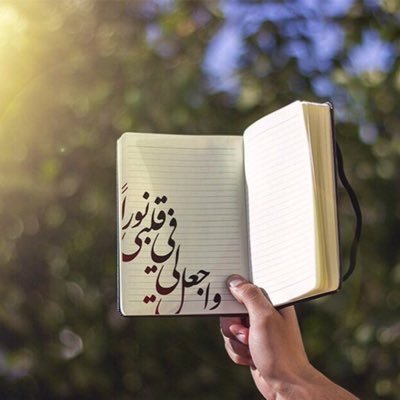 واجعل لی فی قلبی نوراً